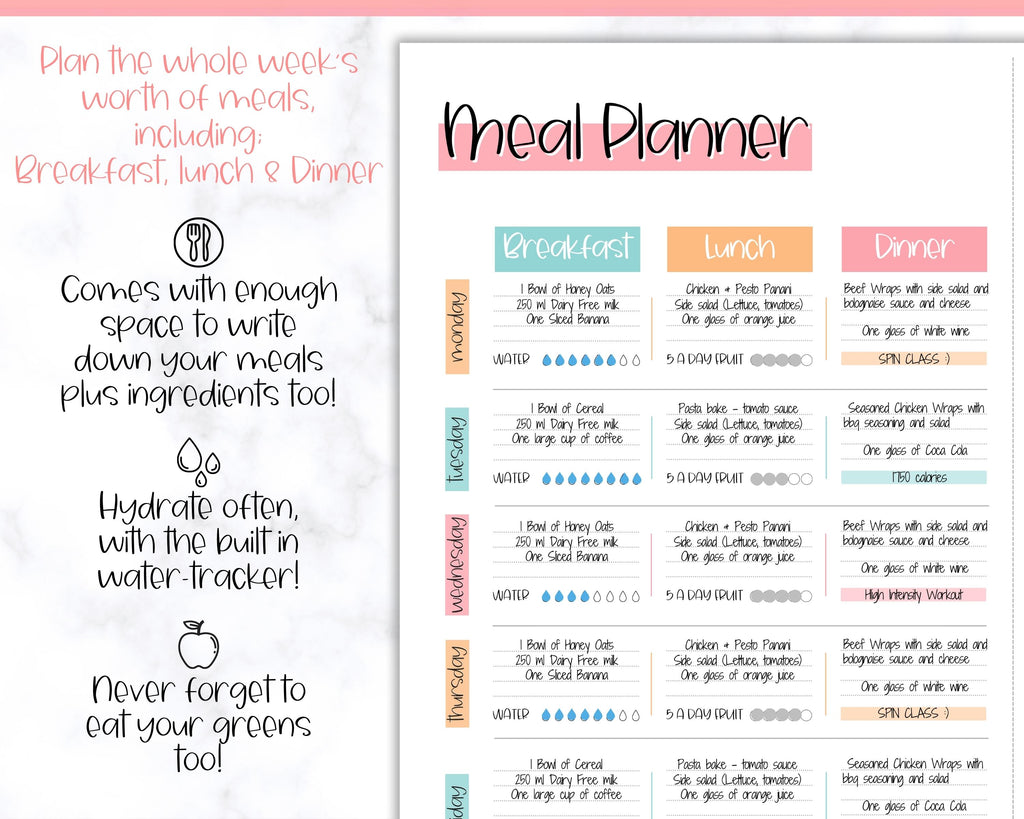 Plan the whole week's
worth of meals,
including;
Breakfast, lunch & Dinner
Comes with enough
space to write
down your meals
plus ingredients too!
Hydrate often,
with the built in
water-tracker!
Never forget to
eat your greens
too!
Meal Planner
Breakfast
Lunch
Dinner
monday
1 Bowl of Honey Oats
250 ml Dairy Free milk
One Sliced Banana
WATER
Chicken & Pesto Panani
Side salad (Lettuce, tomatoes)
One glass of orange juice
5 A DAY FRUIT
Beef Wraps with side salad and
bolognaise sauce and cheese
One glass of white wine
SPIN CLASS :)
tuesday
1 Bowl of Cereal
250 ml Dairy Free milk
One large cup of coffee
WATER
Pasta bake - tomato sauce
Side salad (Lettuce, tomatoes)
One glass of orange juice
5 A DAY FRUIT
Seasoned Chicken Wraps with
bbq seasoning and salad
One glass of Coca Cola
1750 calories
wednesday
1 Bowl of Honey Oats
250 ml Dairy Free milk
One Sliced Banana
WATER
Chicken & Pesto Panani
Side salad (Lettuce, tomatoes)
One glass of orange juice
5 A DAY FRUIT
Beef Wraps with side salad and
bolognaise sauce and cheese
One glass of white wine
High Intensity Workout
thursday
1 Bowl of Honey Oats
250 ml Dairy Free milk
One Sliced Banana
WATER
Chicken & Pesto Panani
Side salad (Lettuce, tomatoes)
One glass of orange juice
5 A DAY FRUIT
Beef Wraps with side salad and
bolognaise sauce and cheese
One glass of white wine
SPIN CLASS :)
1 Bowl of Cereal
250 ml Dairy Free milk
One large cup of coffee
Pasta bake - tomato sauce
Side salad (Lettuce, tomatoes)
One glass of orange juice
Seasoned Chicken Wraps with
bbq seasoning and salad
One glass of Coca Cola